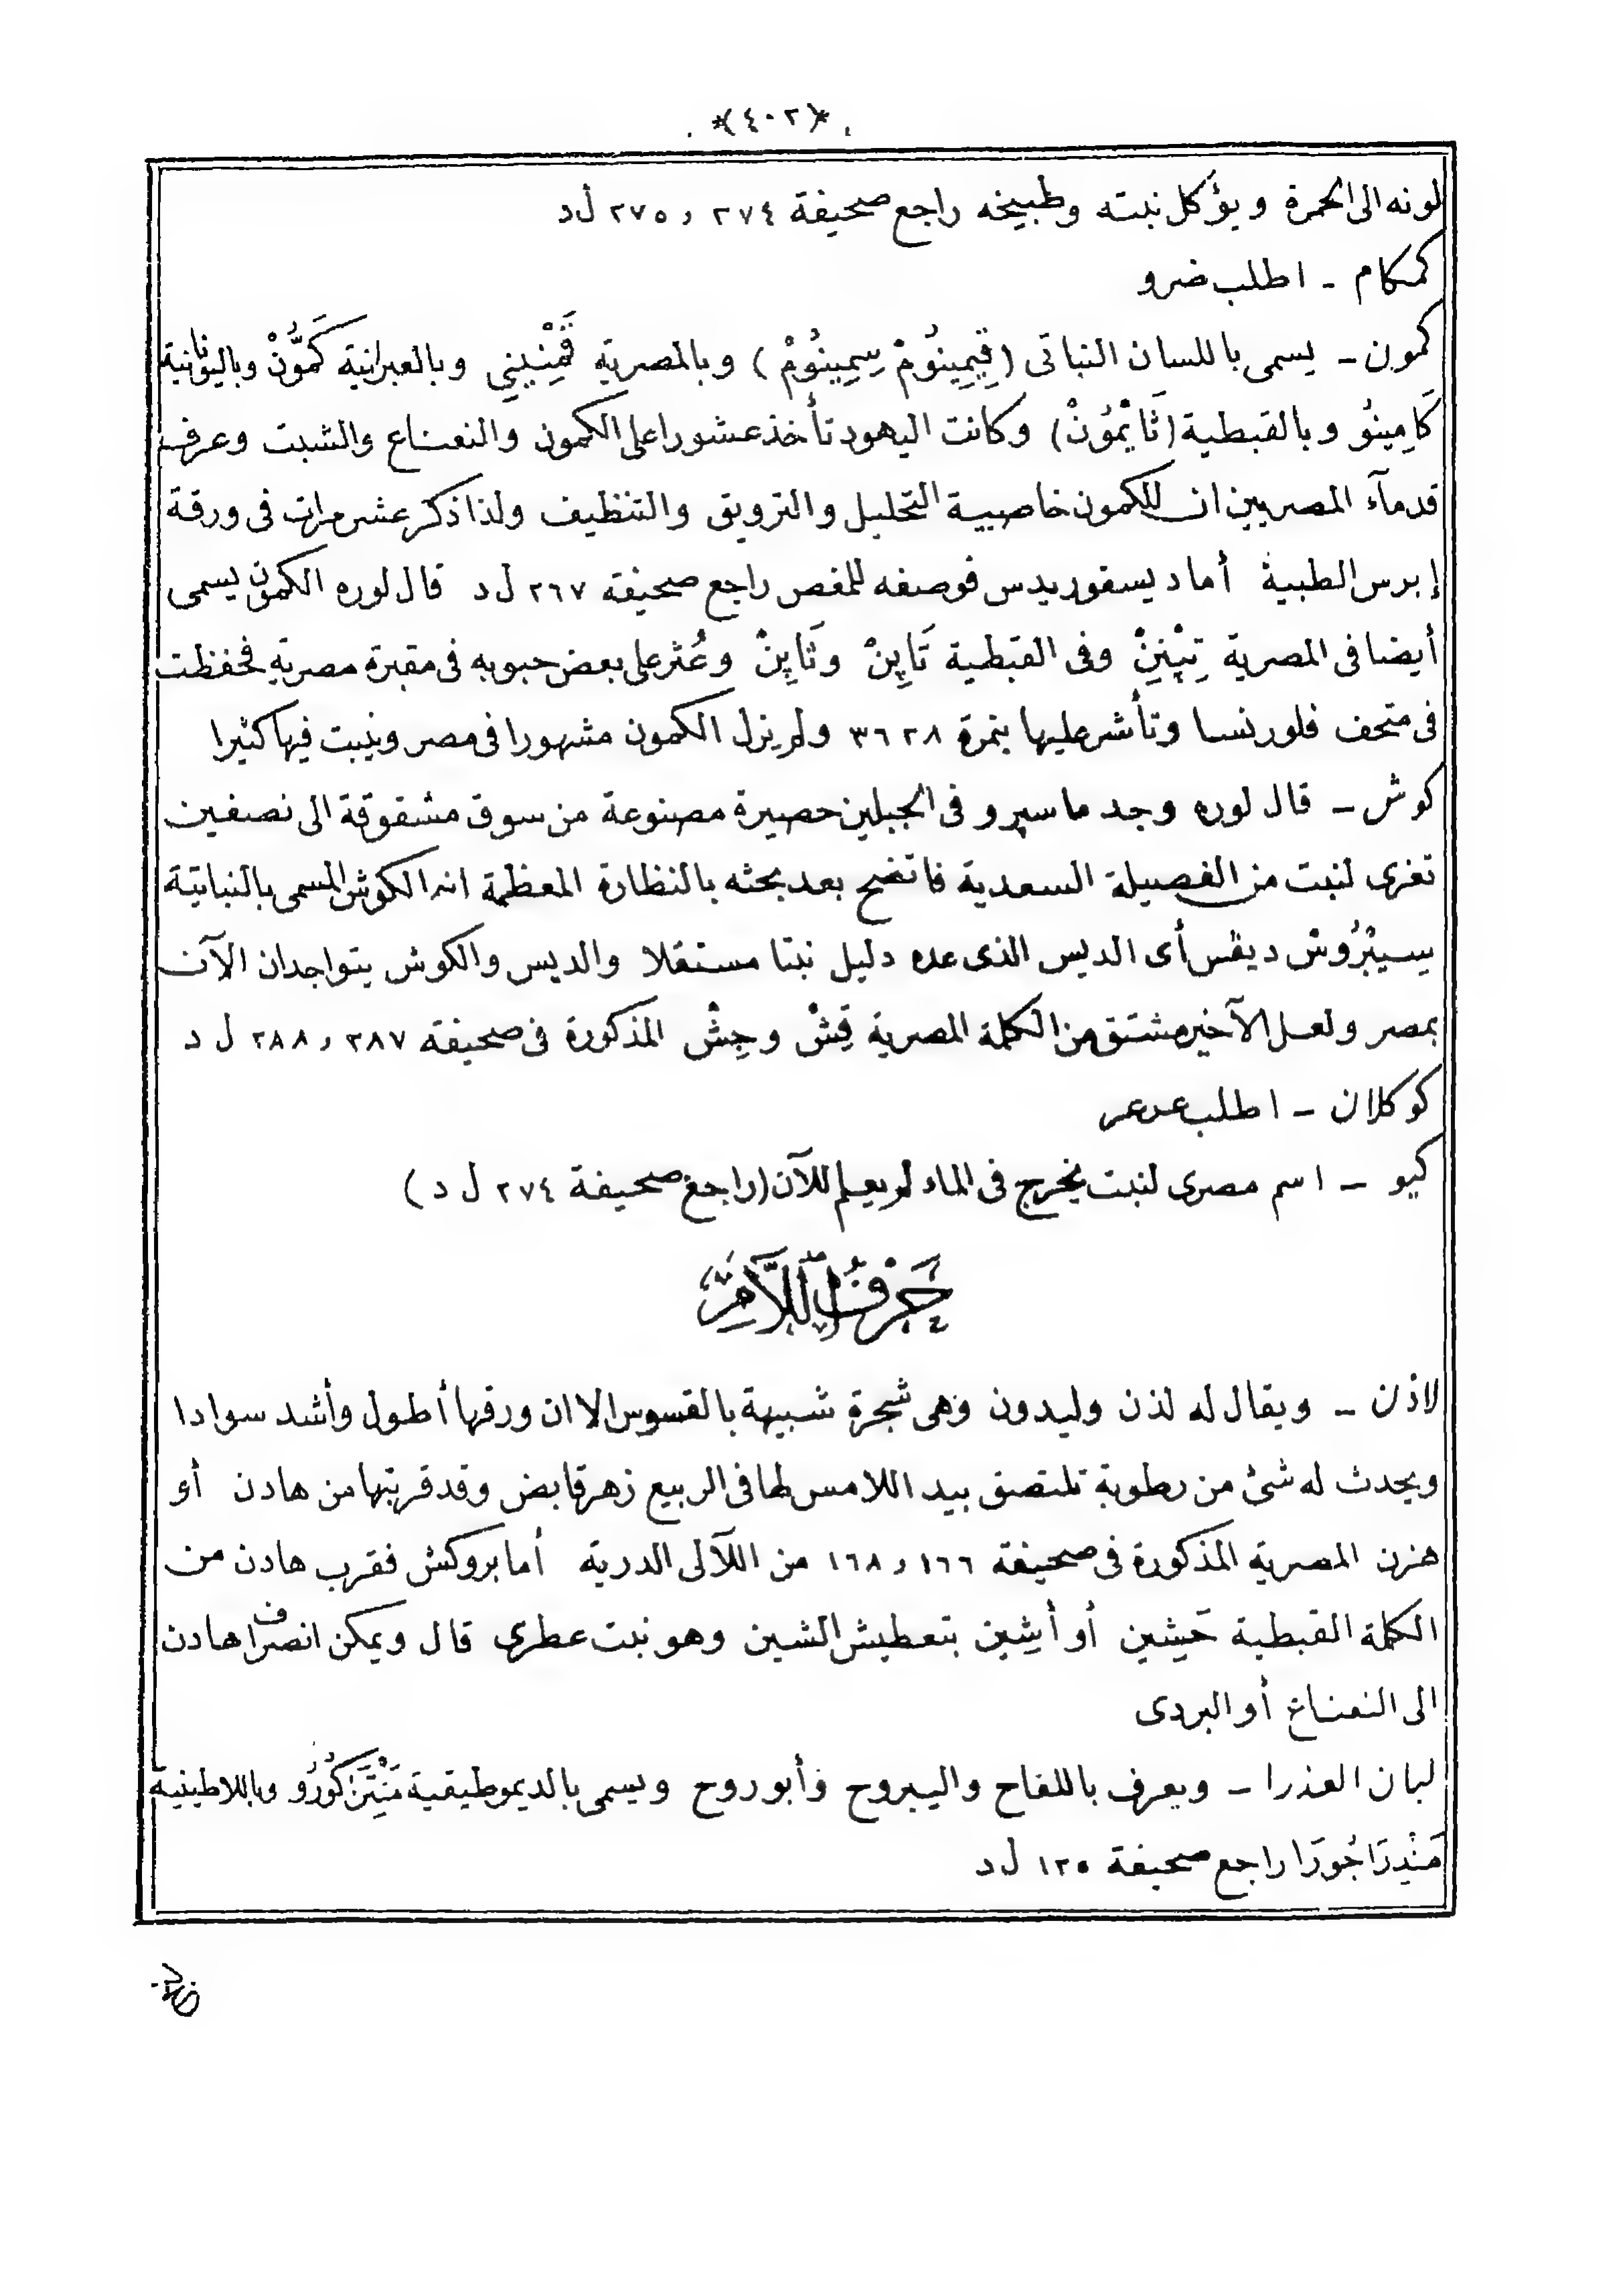 *(٤٠٢)*
لونه الى الحمرة ويؤكل نبته وطبيخه راجع صحيفة ٢٧٤ و ٢٧٥ ل د
كمكام - اطلب ضرو
كمون - يسمى باللسان النباتى (قِيمِينُومْ سِمِينُومْ) وبالمصرية قَمْنِينِى وبالعبرانية كَمُّونْ وباليونانية
كَامِينُو وبالقبطية (تَايْمُونْ) وكانت اليهود تأخذ عشورا على الكمون والنعناع والشبت وعرف
قدمآء المصريين ان للكمون خاصيية التحليل والترويق والتنظيف ولذا ذكر عشر مرات فى ورقة
إبرس الطبية أما ديسقوريدس فوصفه للمغص راجع صحيفة ٢٦٧ ل د قال لوره الكمون يسمى
أيضا فى المصرية تِبْنِنْ وفى القبطية تَاپِنْ وثَاپِنْ وعُثر على بعض حبوبه فى مقبرة مصرية فحفظت
فى متحف فلورنسا وتأشر عليها بنمرة ٣٦٢٨ ولم يزل الكمون مشهورا فى مصر وينبت فيها كثيرا
كوش - قال لوره وجد ماسپرو فى الجبلين حصيرة مصنوعة من سوق مشقوقة الى نصفين
تعزى لنبت من الفصيلة السعدية فاتضح بعد بحثه بالنظارة المعظمة انه الكوش المسمى بالنباتية
سيبرُوش ديفس أى الديس الذى عده دليل نبتا مستقلا والديس والكوش يتواجدان الآن
بمصر ولعل الآخير مشتق من الكلمة المصرية قِشْ وجِشْ المذكورة فى صحيفة ٢٨٧ و ٢٨٨ ل د
كوكلان - اطلب عرعر
كيو - اسم مصرى لنبت يخرج فى الماء لم يعلم للآن (راجع صحيفة ٢٧٤ ل د)
حَرْفُ اللَّامِ
لاذن - ويقال له لذن وليدون وهى شجرة شبيهة بالقسوس الا ان ورقها أطول وأشد سوادا
ويحدث له شئ من رطوبة تلتصق بيد اللامس لها فى الربيع زهر قابض وقد قربتها من هادن أو
هزن المصرية المذكورة فى صحيفة ١٦٦ و ١٦٨ من اللآلى الدرية أما بروكش فقرب هادن من
الكلمة القبطية حَشِين أو أشِين بتعطيش الشين وهو نبت عطرى قال ويمكن انصراف هادن
الى النعناع أو البردى
لبان العذرا - ويعرف باللفاح واليبروح وأبوروح ويسمى بالديموطيقية مَنْتَرَكُورُو وباللاطينية
مَنْدِرَاجُورَا راجع صحيفة ١٢٥ ل د